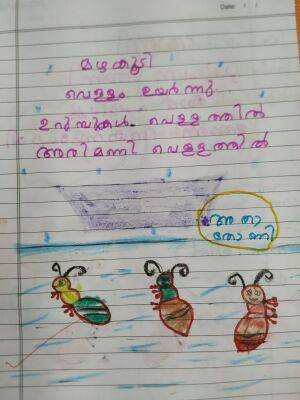 മഴകൂടി
വെള്ളം ഉയർന്നു
ഉറുമ്പുകൾ വെള്ളത്തിൽ
അരിമണി വെള്ളത്തിൽ
അതാ
തോണി
Date: / /